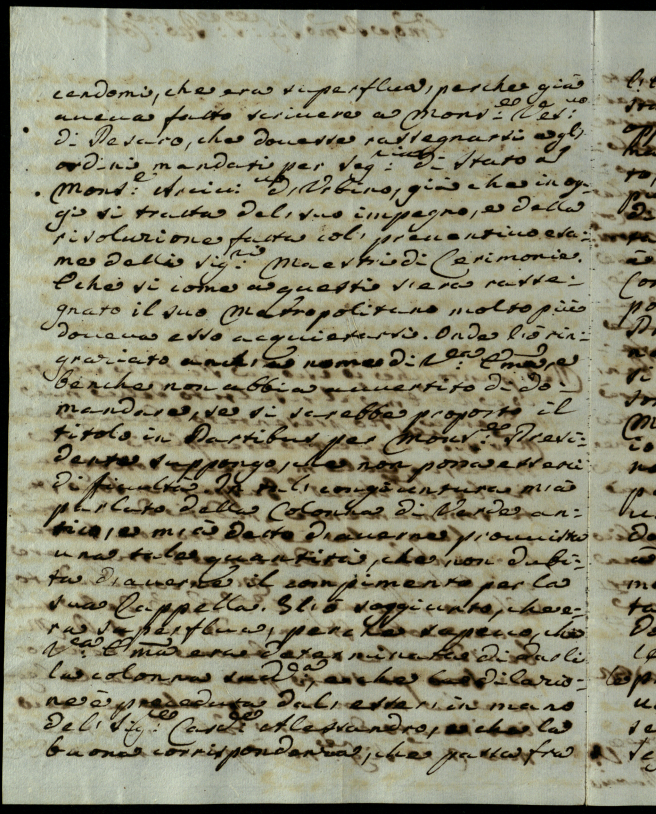 cendomi, che era superflua, perche già
aueua fatto scriuere à Mons.re Ves.uo
di Pesaro, che douesse rassegnarsi agl'
ordini mandati per Seg.ria di Stato à
Mons.re Arciu.uo d'Urbino, già che in og-
gi si tratta del suo impegno, e della
risoluzione fatta col preuentiuo esa-
me delli Sig.ri Maestri di Cerimonie.
E che si come a questi s'era rasse-
gnato il suo Metropolitano molto più
doueua esso acquietarsi. Onde l'hò rin-
graziato anche à nome di V.ra Em.a, e
benche non abbia auuertito di do-
mandare, se si sarebbe proposto il
titolo in Partibus per Mons.re Presi-
dente suppongo, che non possa esserci
difficultà. In tal congiuntura m'hà
parlato della Colonna di Verde an-
tico, e m'hà detto d'auerne prouuista
una tale quantità, che non dubi-
ta d'auerne il compimento per la
sua Cappella. Gl'hò soggiunto, che e-
ra superflua, perche sapeuo, che
V.ra Em.a era determinata di dargli
la colonna sud.a, e che la dilazio-
ne è proceduta dal esser in mano
del Sig.re Card.le Alessandro, e che la
buona corrispondenza, che passa fra